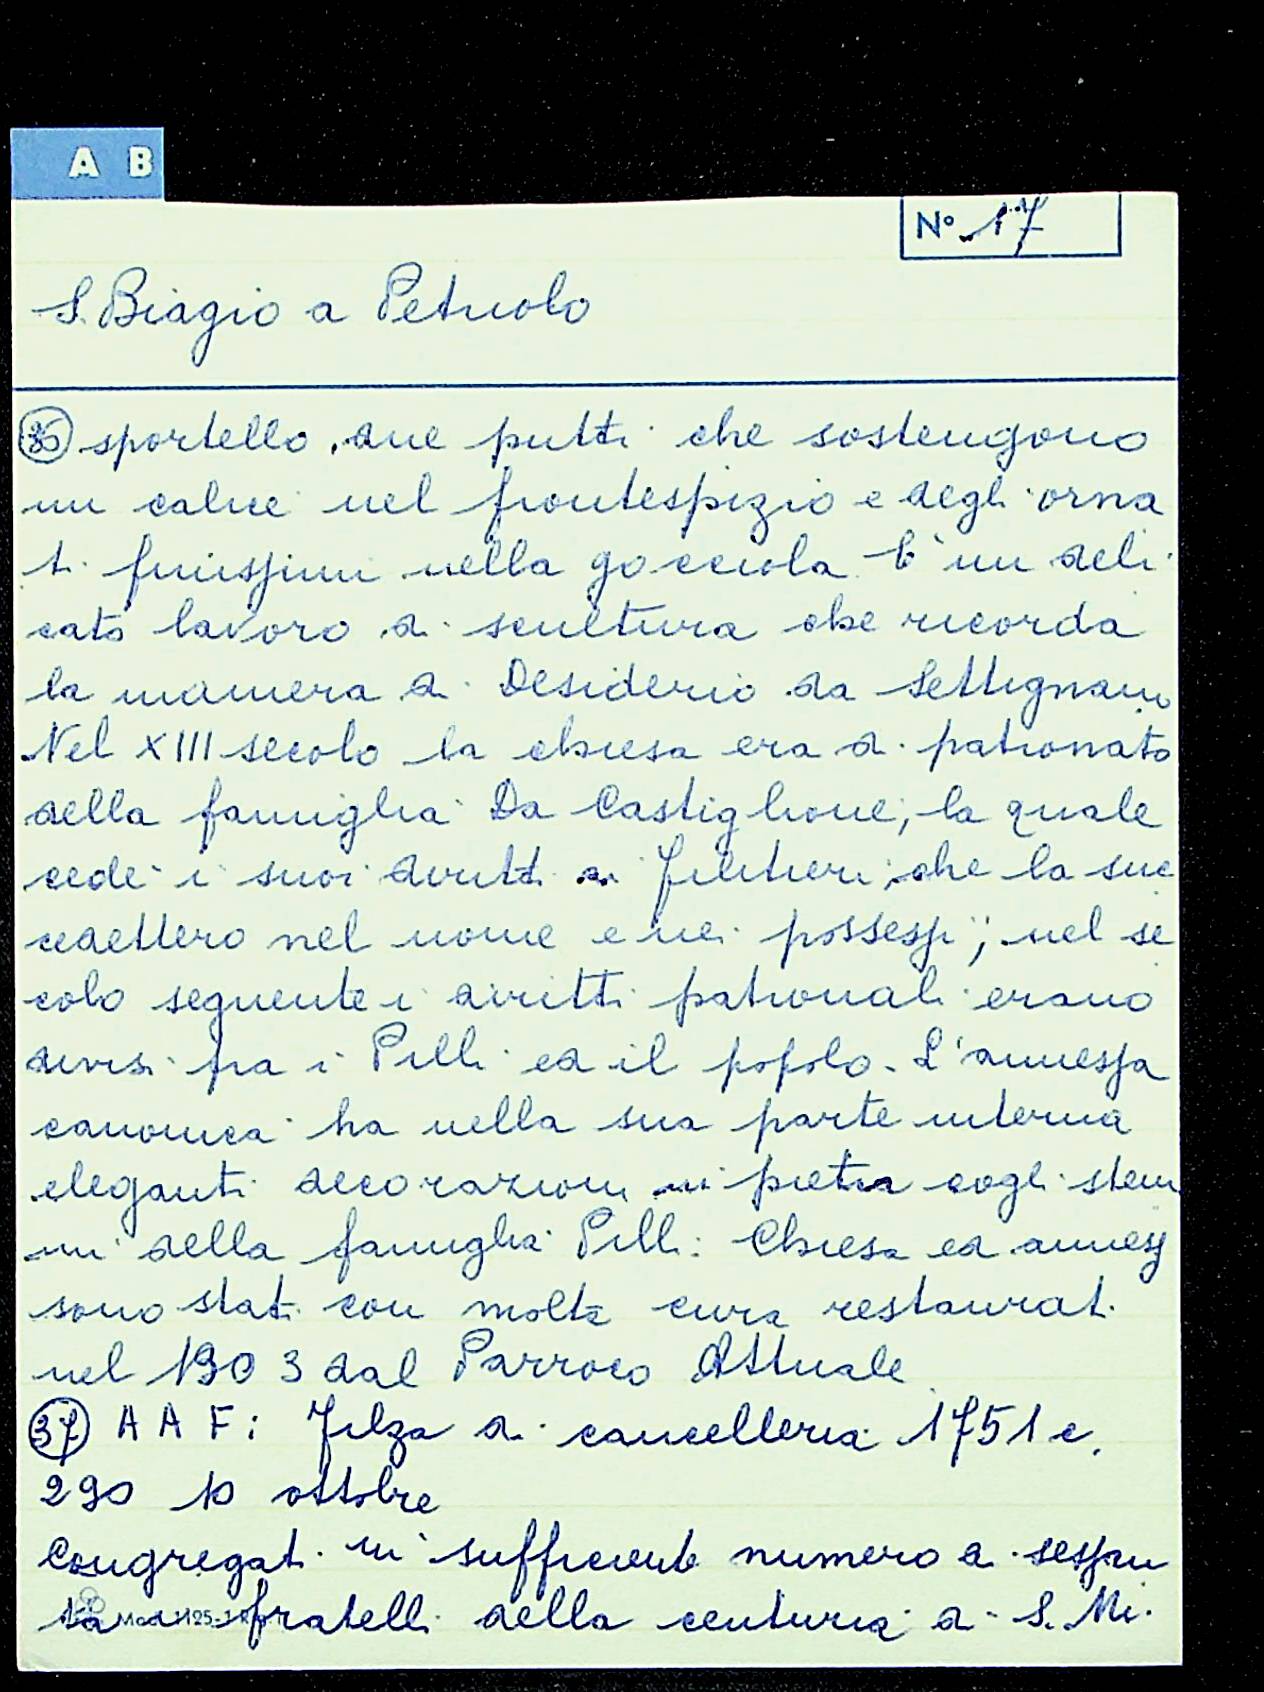 A B
N° 17
S. Biagio a Petriolo
36 sportello, due putti che sostengono
un calice nel frontespizio e degli orna
ti finissimi nella gocciola. È un deli
cato lavoro di scultura che ricorda
la maniera di Desiderio da Settignano
Nel XIII secolo la chiesa era di patronato
della famiglia Da Castiglione, la quale
cedé i suoi diritti ai Filitieri, che la suc
cedettero nel nome e nei possessi; nel se
colo seguente i diritti patronali erano
divisi fra i Pilli ed il popolo. L'annessa
canonica ha nella sua parte interna
eleganti decorazioni in pietra cogli stem
mi della famiglia Pilli. Chiesa ed annessi
sono stati con molta cura restaurati
nel 1903 dal Parroco Attuale
37 A A F: Filza di cancelleria 1751 c.
290 10 ottobre
Congregati in sufficiente numero di sessan
ta fratelli della centuria di S. Mi.